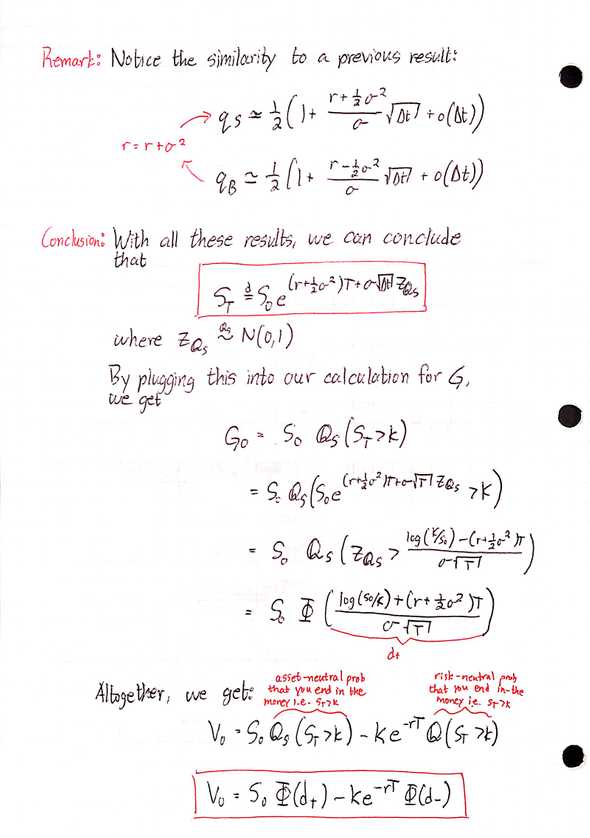 Remark: Notice the similarity to a previous result:
q_S ≃ 1/2 (1 + (r + 1/2 σ²)/σ √Δt + o(Δt))
r = r + σ²
q_B ≃ 1/2 (1 + (r − 1/2 σ²)/σ √Δt + o(Δt))
Conclusion: With all these results, we can conclude
that
S_T =^d S_0 e^{(r + 1/2 σ²)T + σ√Δt Z_{Q_S}}
where Z_{Q_S} ~^{Q_S} N(0,1)
By plugging this into our calculation for G,
we get
G_0 = S_0 Q_S (S_T > K)
= S_0 Q_S (S_0 e^{(r + 1/2 σ²)T + σ√T Z_{Q_S}} > K)
= S_0 Q_S (Z_{Q_S} > (log(K/S_0) − (r + 1/2 σ²)T)/(σ√T))
= S_0 Φ ((log(S_0/K) + (r + 1/2 σ²)T)/(σ√T))
d+
asset-neutral prob
that you end in the
money i.e. S_T > K
risk-neutral prob
that you end in-the
money i.e. S_T > K
Altogether, we get:
V_0 = S_0 Q_S (S_T > K) − K e^{−rT} Q(S_T > K)
V_0 = S_0 Φ(d+) − K e^{−rT} Φ(d−)